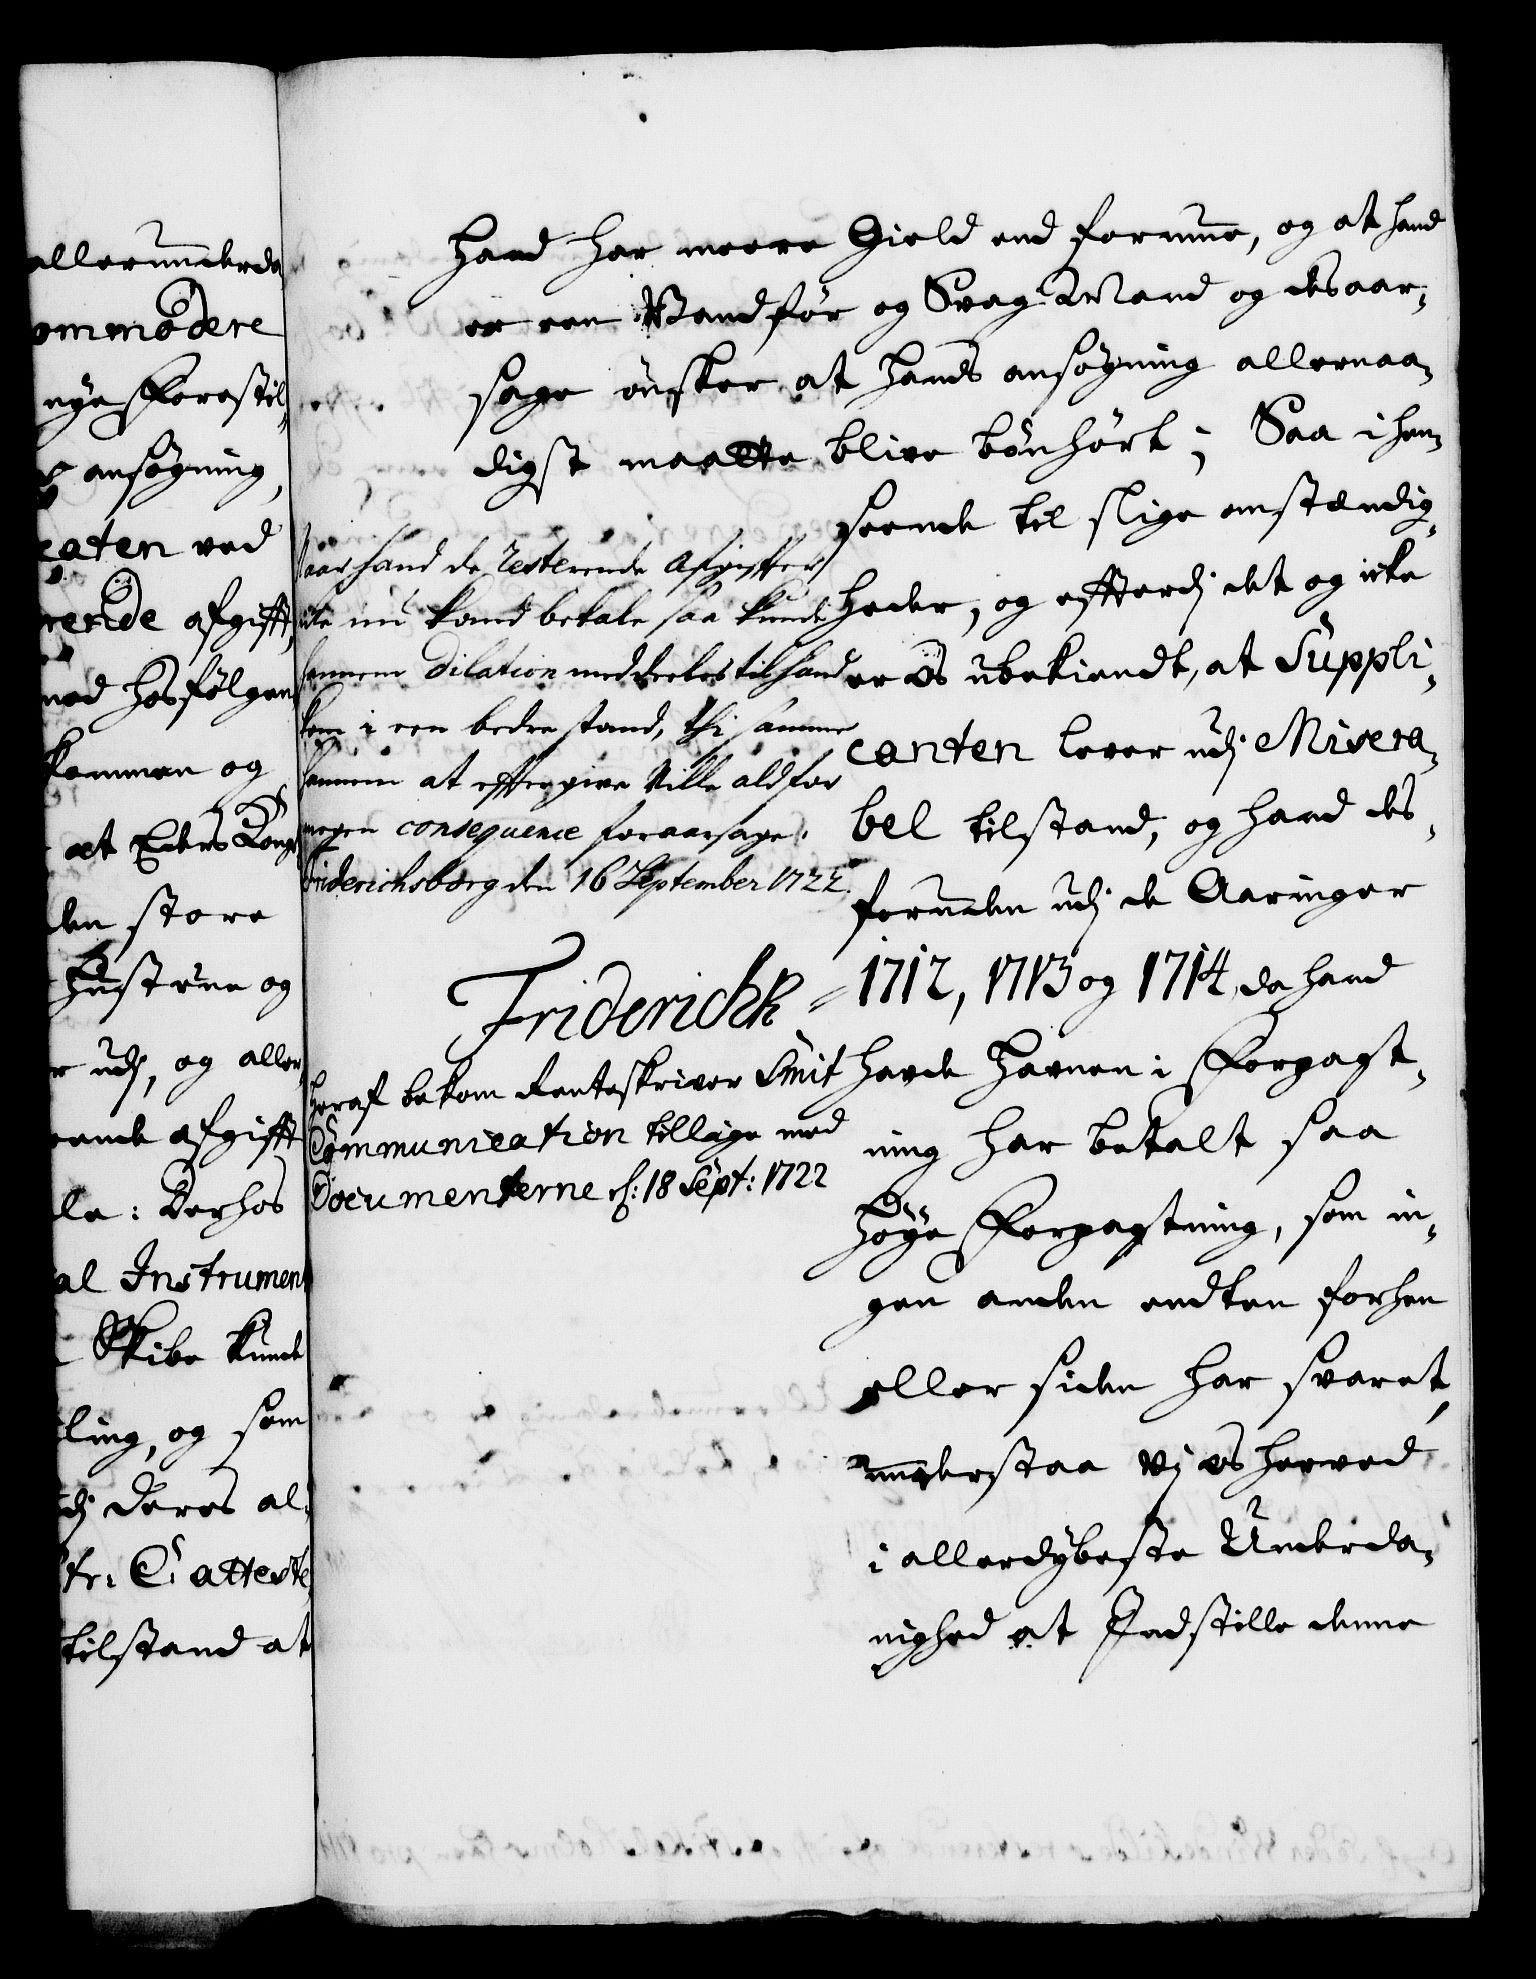 allerunderda
ommodere
nye Forestil
ansøgning,
caten ved
rende afgifft,
med hosfølgen
kommen og
at Eders Kong
den store
Hustrue og
r udj, og aller
ende afgifft
le: Derhos
al Instrument
Skibe kunde
ling, og som
dj deres al
tr: C: atteste
tilstand at
hand har meere Gield end formue, og at hand
er een Vandfør og Svag Mand og desaar,
sage ønsker at hands ansøgning allernaa,
digst maatte blive bønhørt; Saa i hen,
seende til slige omstændig,
heder, og efftterdj det og icke
er os ubekiendt, at Suppli,
canten lever udj Misera,
bel tilstand, og hand des,
foruden udj de Aaringer
1712, 1713 og 1714, da hand
hafde Havnen i Forpagt,
ning har betalt saa
høye Forpagtning, som in,
gen anden endten forhen
eller siden har svaret,
understaa vj os herved
i allerdybeste Underda,
nighed at Indstille denne
Naar hand de resterende Afgiffter
icke nu kand betale saa kunde
hannem Dilation meddeeles til hand
kom i een bedre stand, thi samme
hannem at efftergive Ville alt for
megen consequence foraarsage.
Friderichsborg den 16 September 1722.
Friderich R
Heraf bekom Renteskriver Smit
Communication tillige med
Documenterne d: 18 Sept: 1722